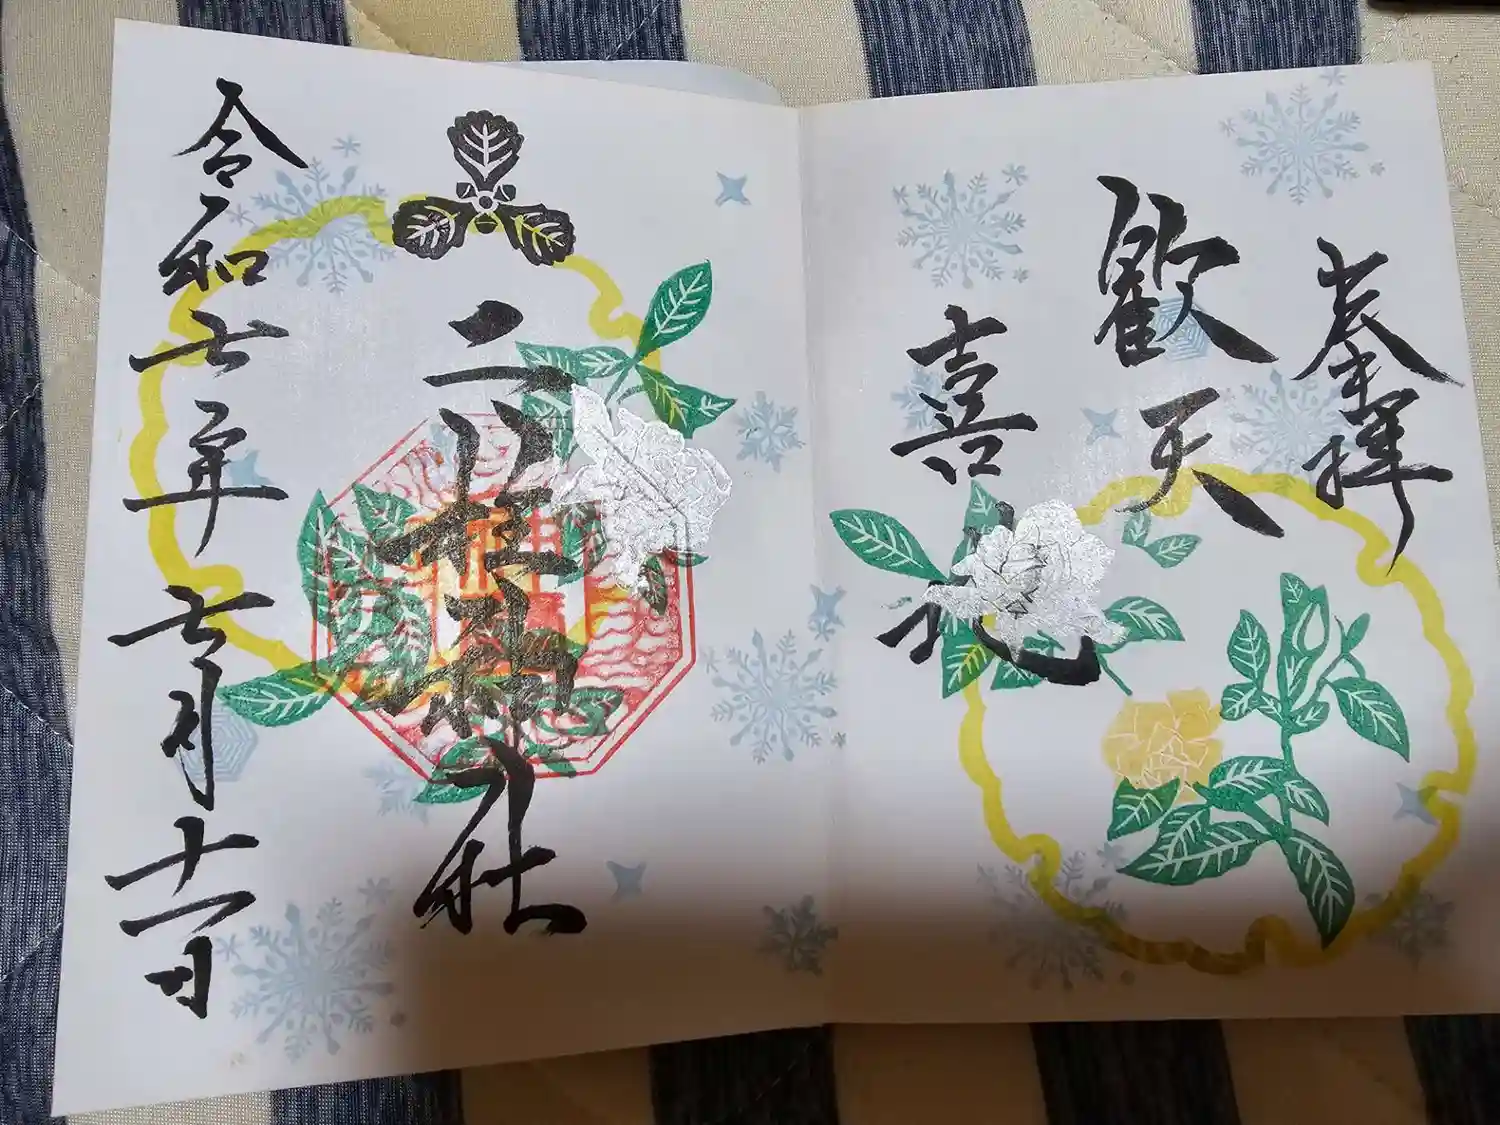 奉拝
歓天
喜地
二柱神社
令和七年七月十一日